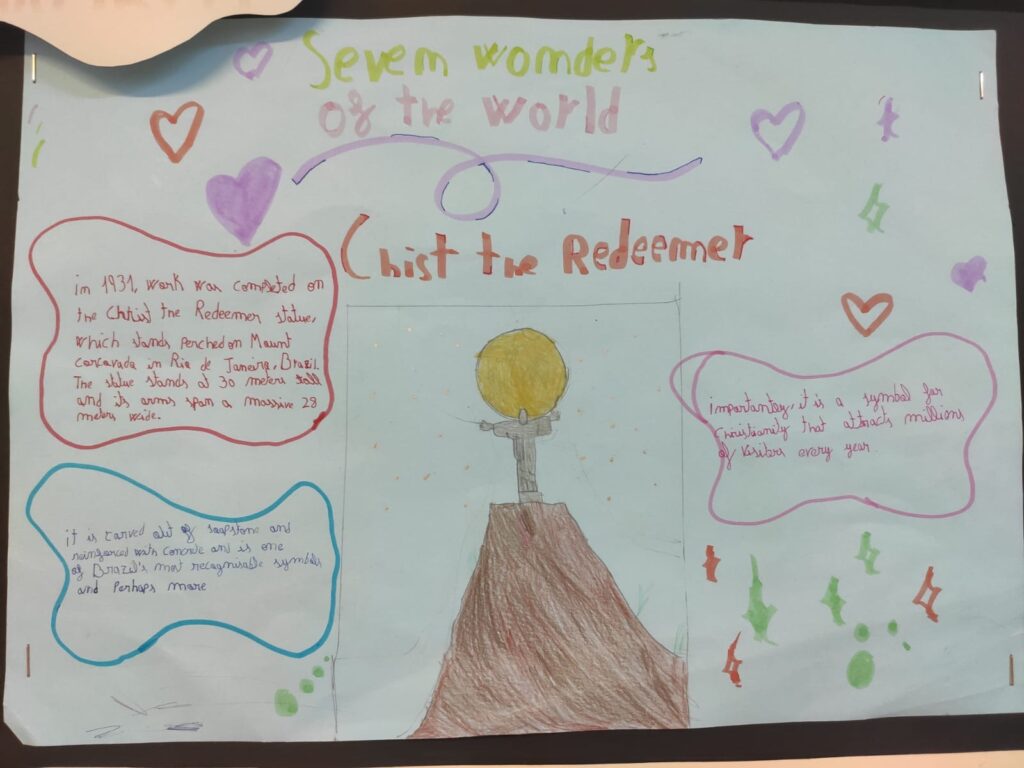 Sevem wonders
of the world
Chist the Redeemer
in 1931, work was completed on
the Christ the Redeemer statue,
which stands perched on Mount
Corcavada in Rio de Janeiro, Brazil.
The statue stands at 30 meters tall
and its arms span a massive 28
meters wide.
it is carved out of soapstone and
reinforced with concrete and is one
of Brazil's most recognisable symbols
and Perhaps more
importantey, it is a symbol for
Christianity that attracts millions
of visitors every year.